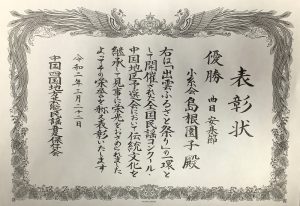 表彰状
優勝 曲目 安来節
小奈会 島根園子 殿
右は「出雲ふるさと祭り」の一環と
して開催された全国民謡コンクール・
中国地区予選会において伝統文化を
継承して見事に栄光をおさめられました
よってその栄誉を称え表彰いたします
令和二年三月二十二日
中国四国地方民謡保存会